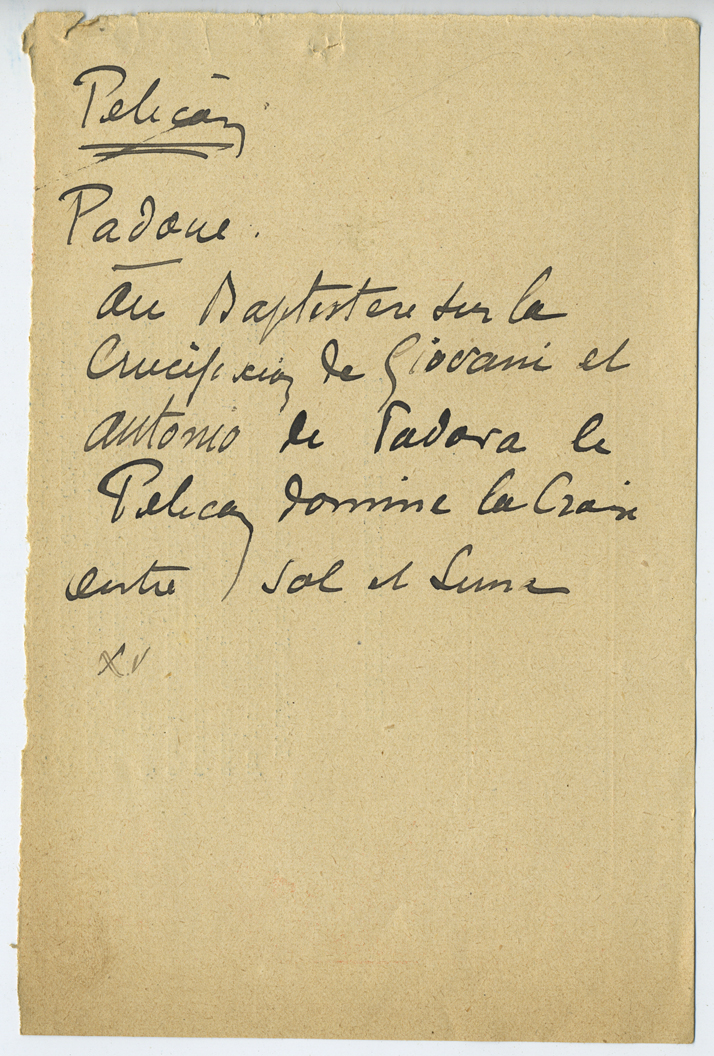 Pelican
Padoue.
au Baptistere sur la
Crucifixion de Giovani et
Antonio de Padova le
Pelican domine la Croix
entre sol et Lune
XV